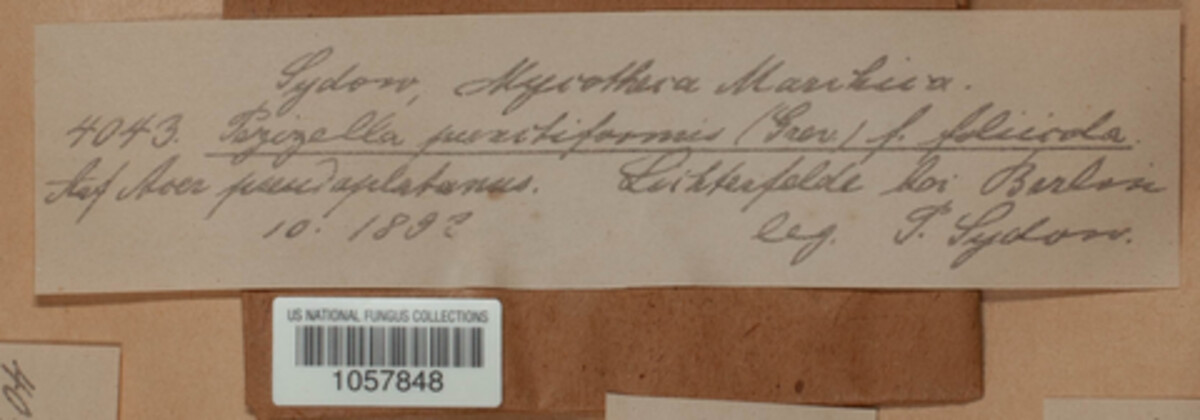 Sydow, Mycotheca Marchica.
4043. Pezizella punctiformis (Grev.) f. foliicola.
Auf Acer pseudoplatanus. Lichterfelde bei Berlin
10. 1892 leg. P. Sydow.
US NATIONAL FUNGUS COLLECTIONS
1057848
40